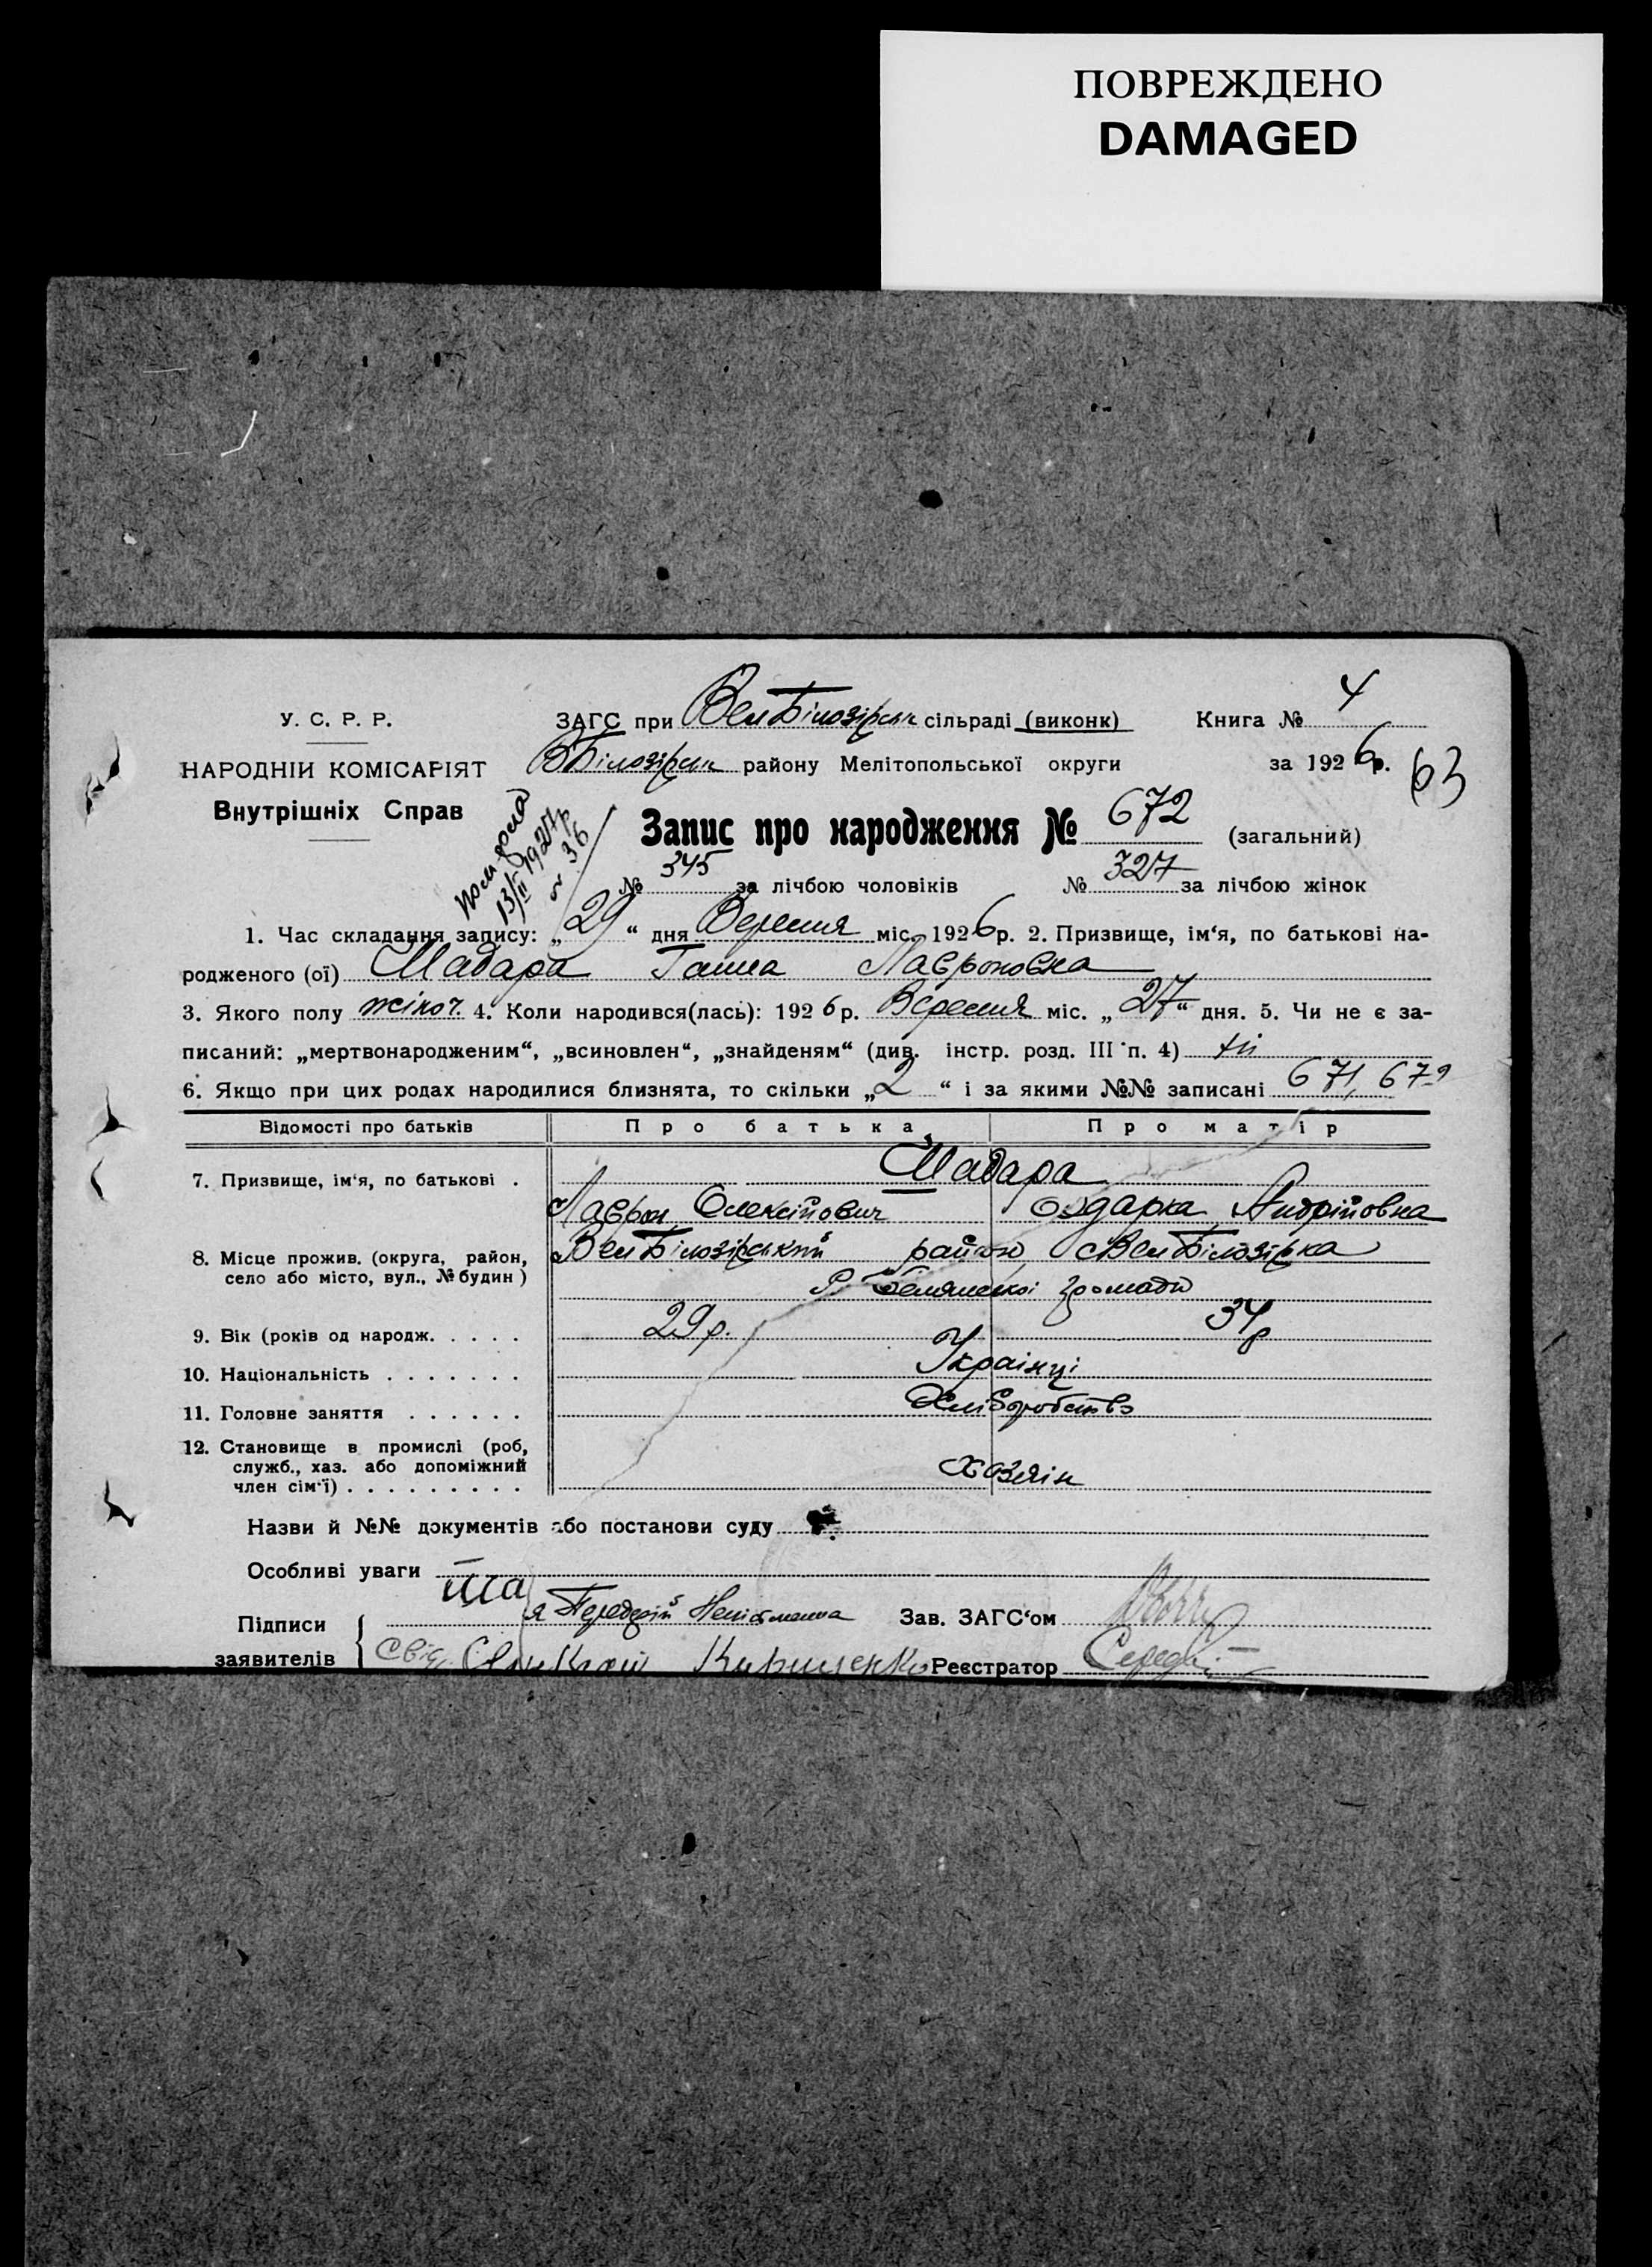 ПОВРЕЖДЕНО
DAMAGED
У. С. Р. Р.
НАРОДНІЙ КОМІСАРІЯТ
Внутрішніх Справ
ЗАГС при ВелБілозірськ сільраді (виконк)
ВБілозірськ району Мелітопольської округи
Книга № 4
за 1926р. 63
Помер
13/II 1927 р
№ 36
Запис про народження № 672 (загальний)
№ 345 за лічбою чоловіків № 327 за лічбою жінок
1. Час складання запису: „29“ дня Вересня міс. 1926р. 2. Призвище, ім‘я, по батькові на-
родженого (ої) Шабара Ганна Лавроновна
3. Якого полу жіноч. 4. Коли народився(лась): 1926р. Вересня міс. „27“ дня. 5. Чи не є за-
писаний: „мертвонародженим“, „всиновлен“, „знайденям“ (див. інстр. розд. III п. 4) ні
6. Якщо при цих родах народилися близнята, то скільки „2“ і за якими №№ записані 671, 672
Відомості про батьків Про батька Про матір
7. Призвище, ім‘я, по батькові . Шабара
Лаврон Олексійович Оздарка Андрійовна
8. Місце прожив. (округа, район,
село або місто, вул., № будин)
ВелБілозірський район, с ВелБілозірка
громади
9. Вік (років од народж. . . . . 29 р. 34 р
10. Національність . . . . . . . Українці
11. Головне заняття . . . . . . Хліборобство
12. Становище в промислі (роб,
служб., хаз. або допоміжний
член сім‘ї) . . . . . . . . . Хазяін
Назви й №№ документів або постанови суду
Особливі уваги
Підписи
заявителів
Зав. ЗАГС‘ом
Свід. Кириченко
Реєстратор